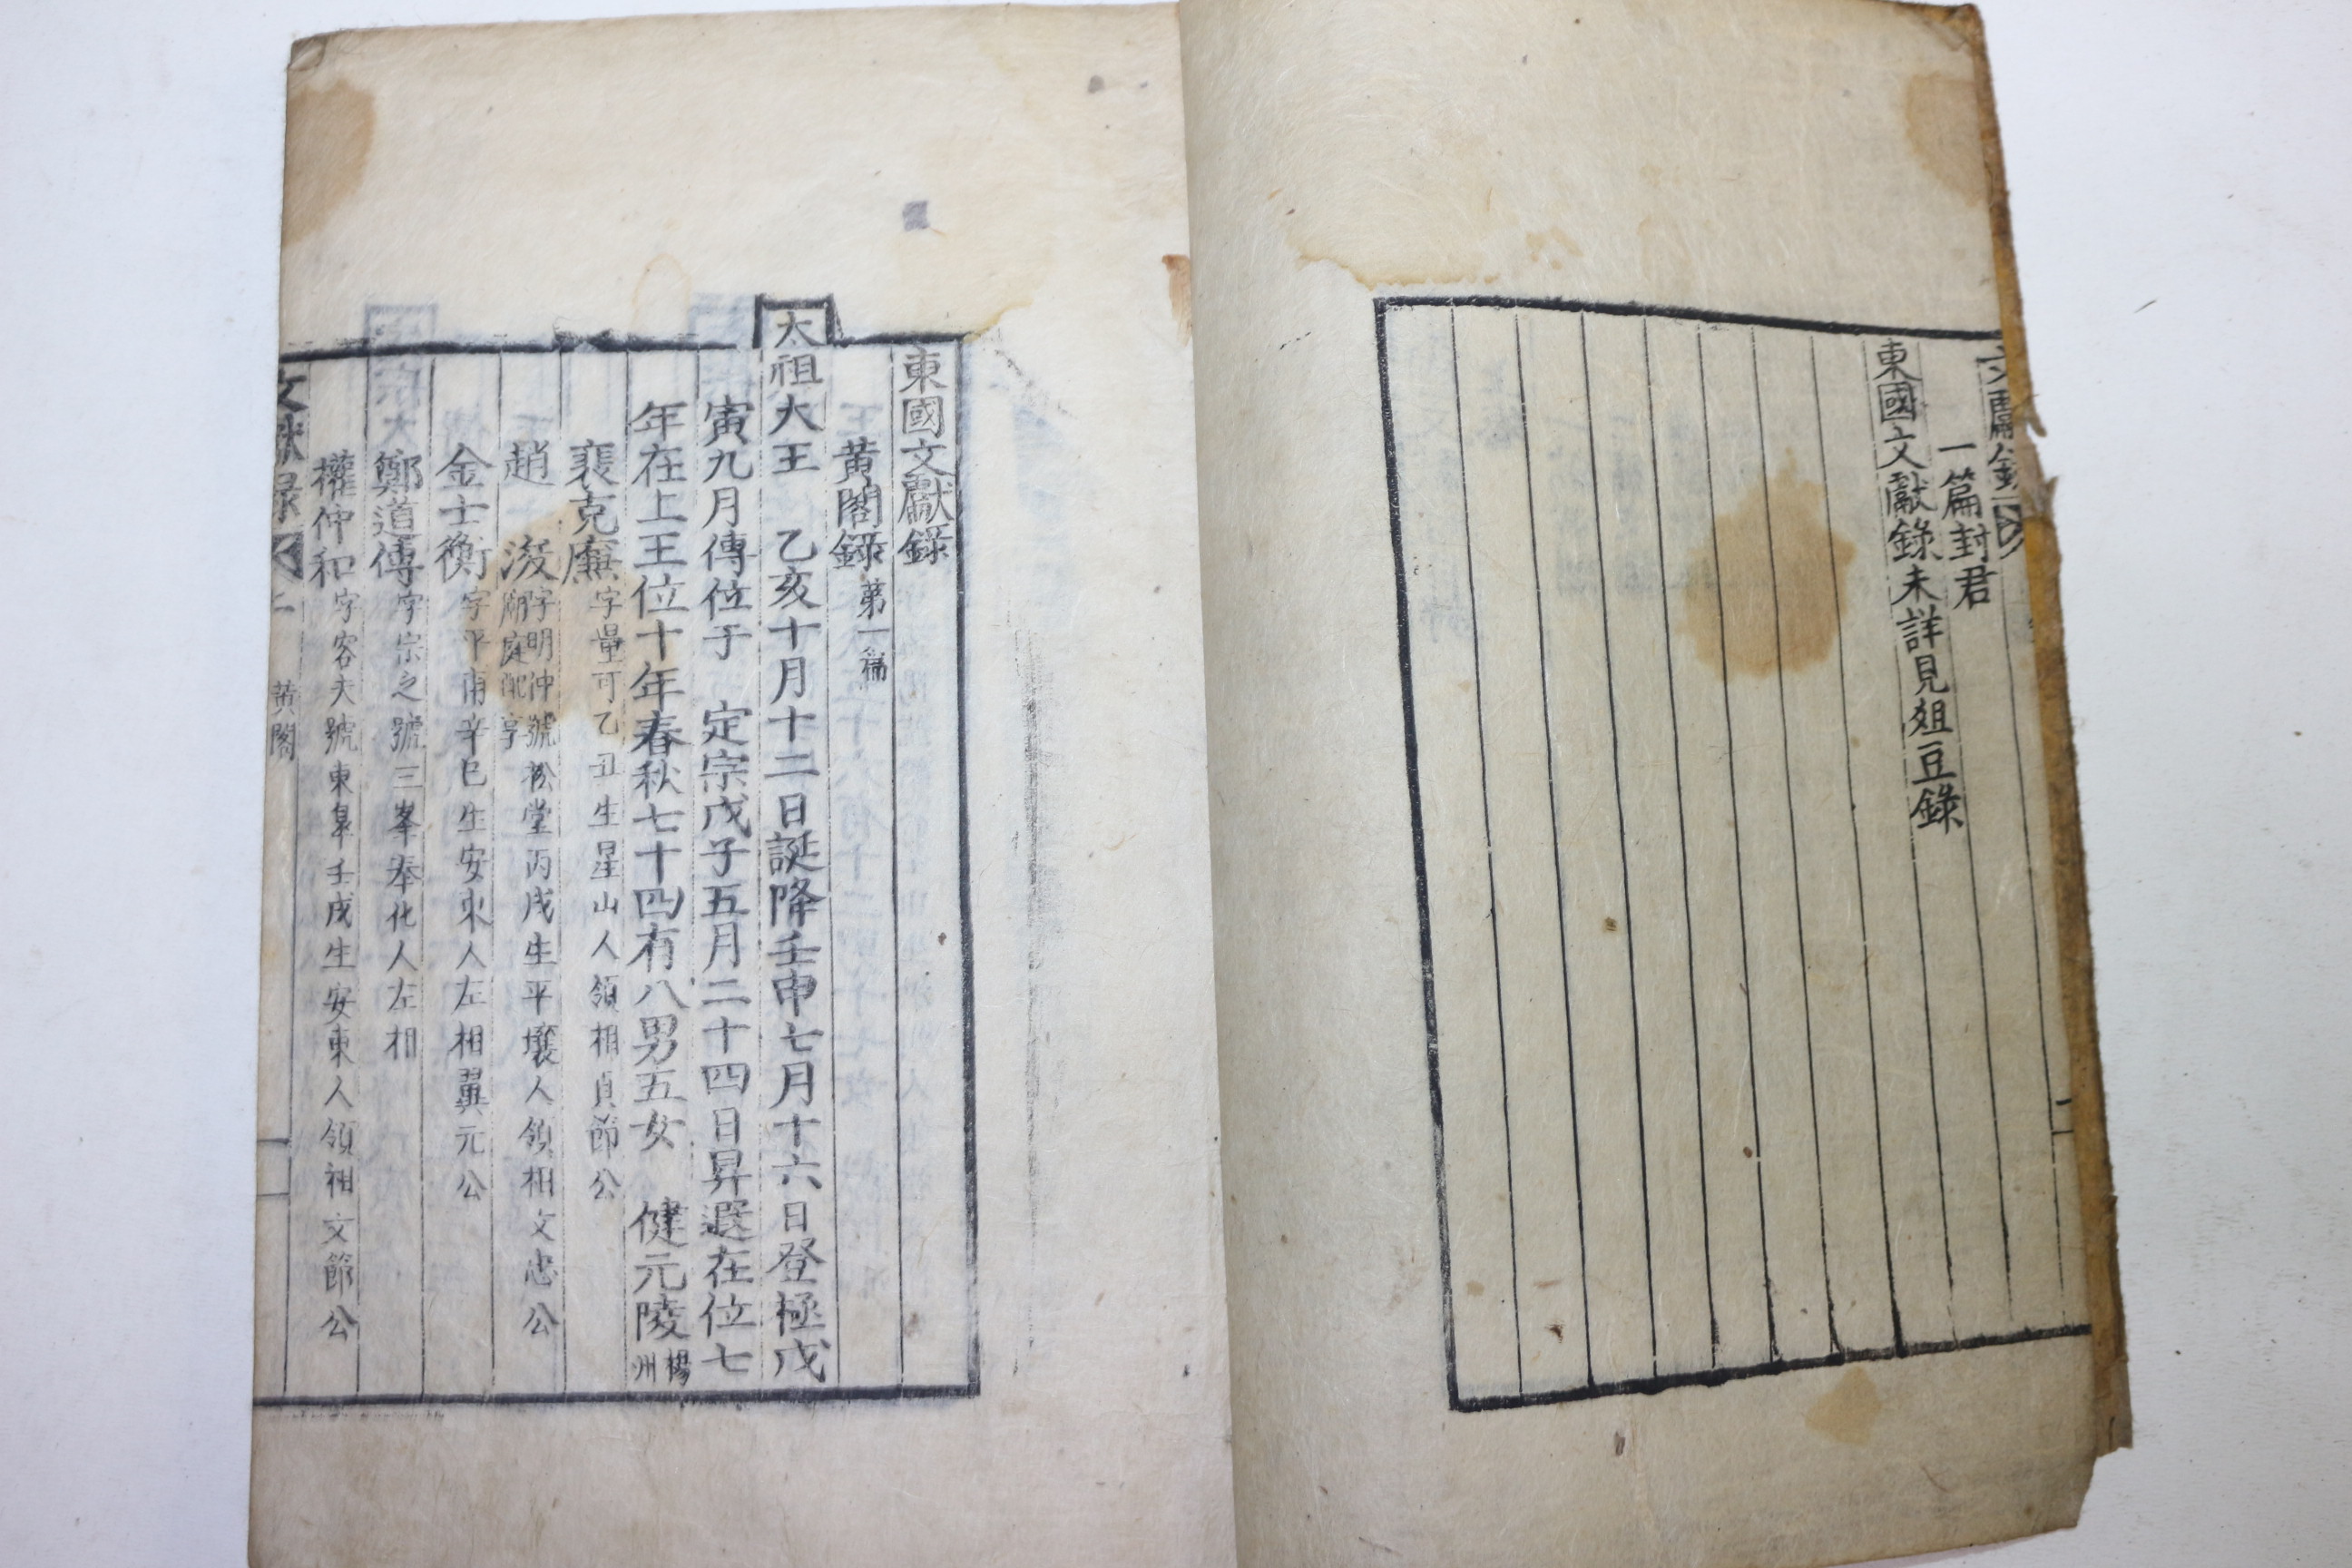 一篇封君
東國文獻錄未詳見俎豆錄
東國文獻錄
黄閣錄第一篇
太祖大王 乙亥十月十二日誕降壬申七月十六日登極戊
寅九月傳位于 定宗戊子五月二十四日昇遐在位七
年在上王位十年春秋七十四有八男五女 健元陵楊州
裵克廉字量可乙丑生星山人領相貞節公
趙浚字明仲號松堂丙戌生平壤人領相文忠公廟庭配享
金士衡字平甫辛巳生安東人左相翼元公
鄭道傳字宗之號三峯奉化人左相
權仲和字容夫號東皐壬戌生安東人領相文節公
文獻录 黄閣